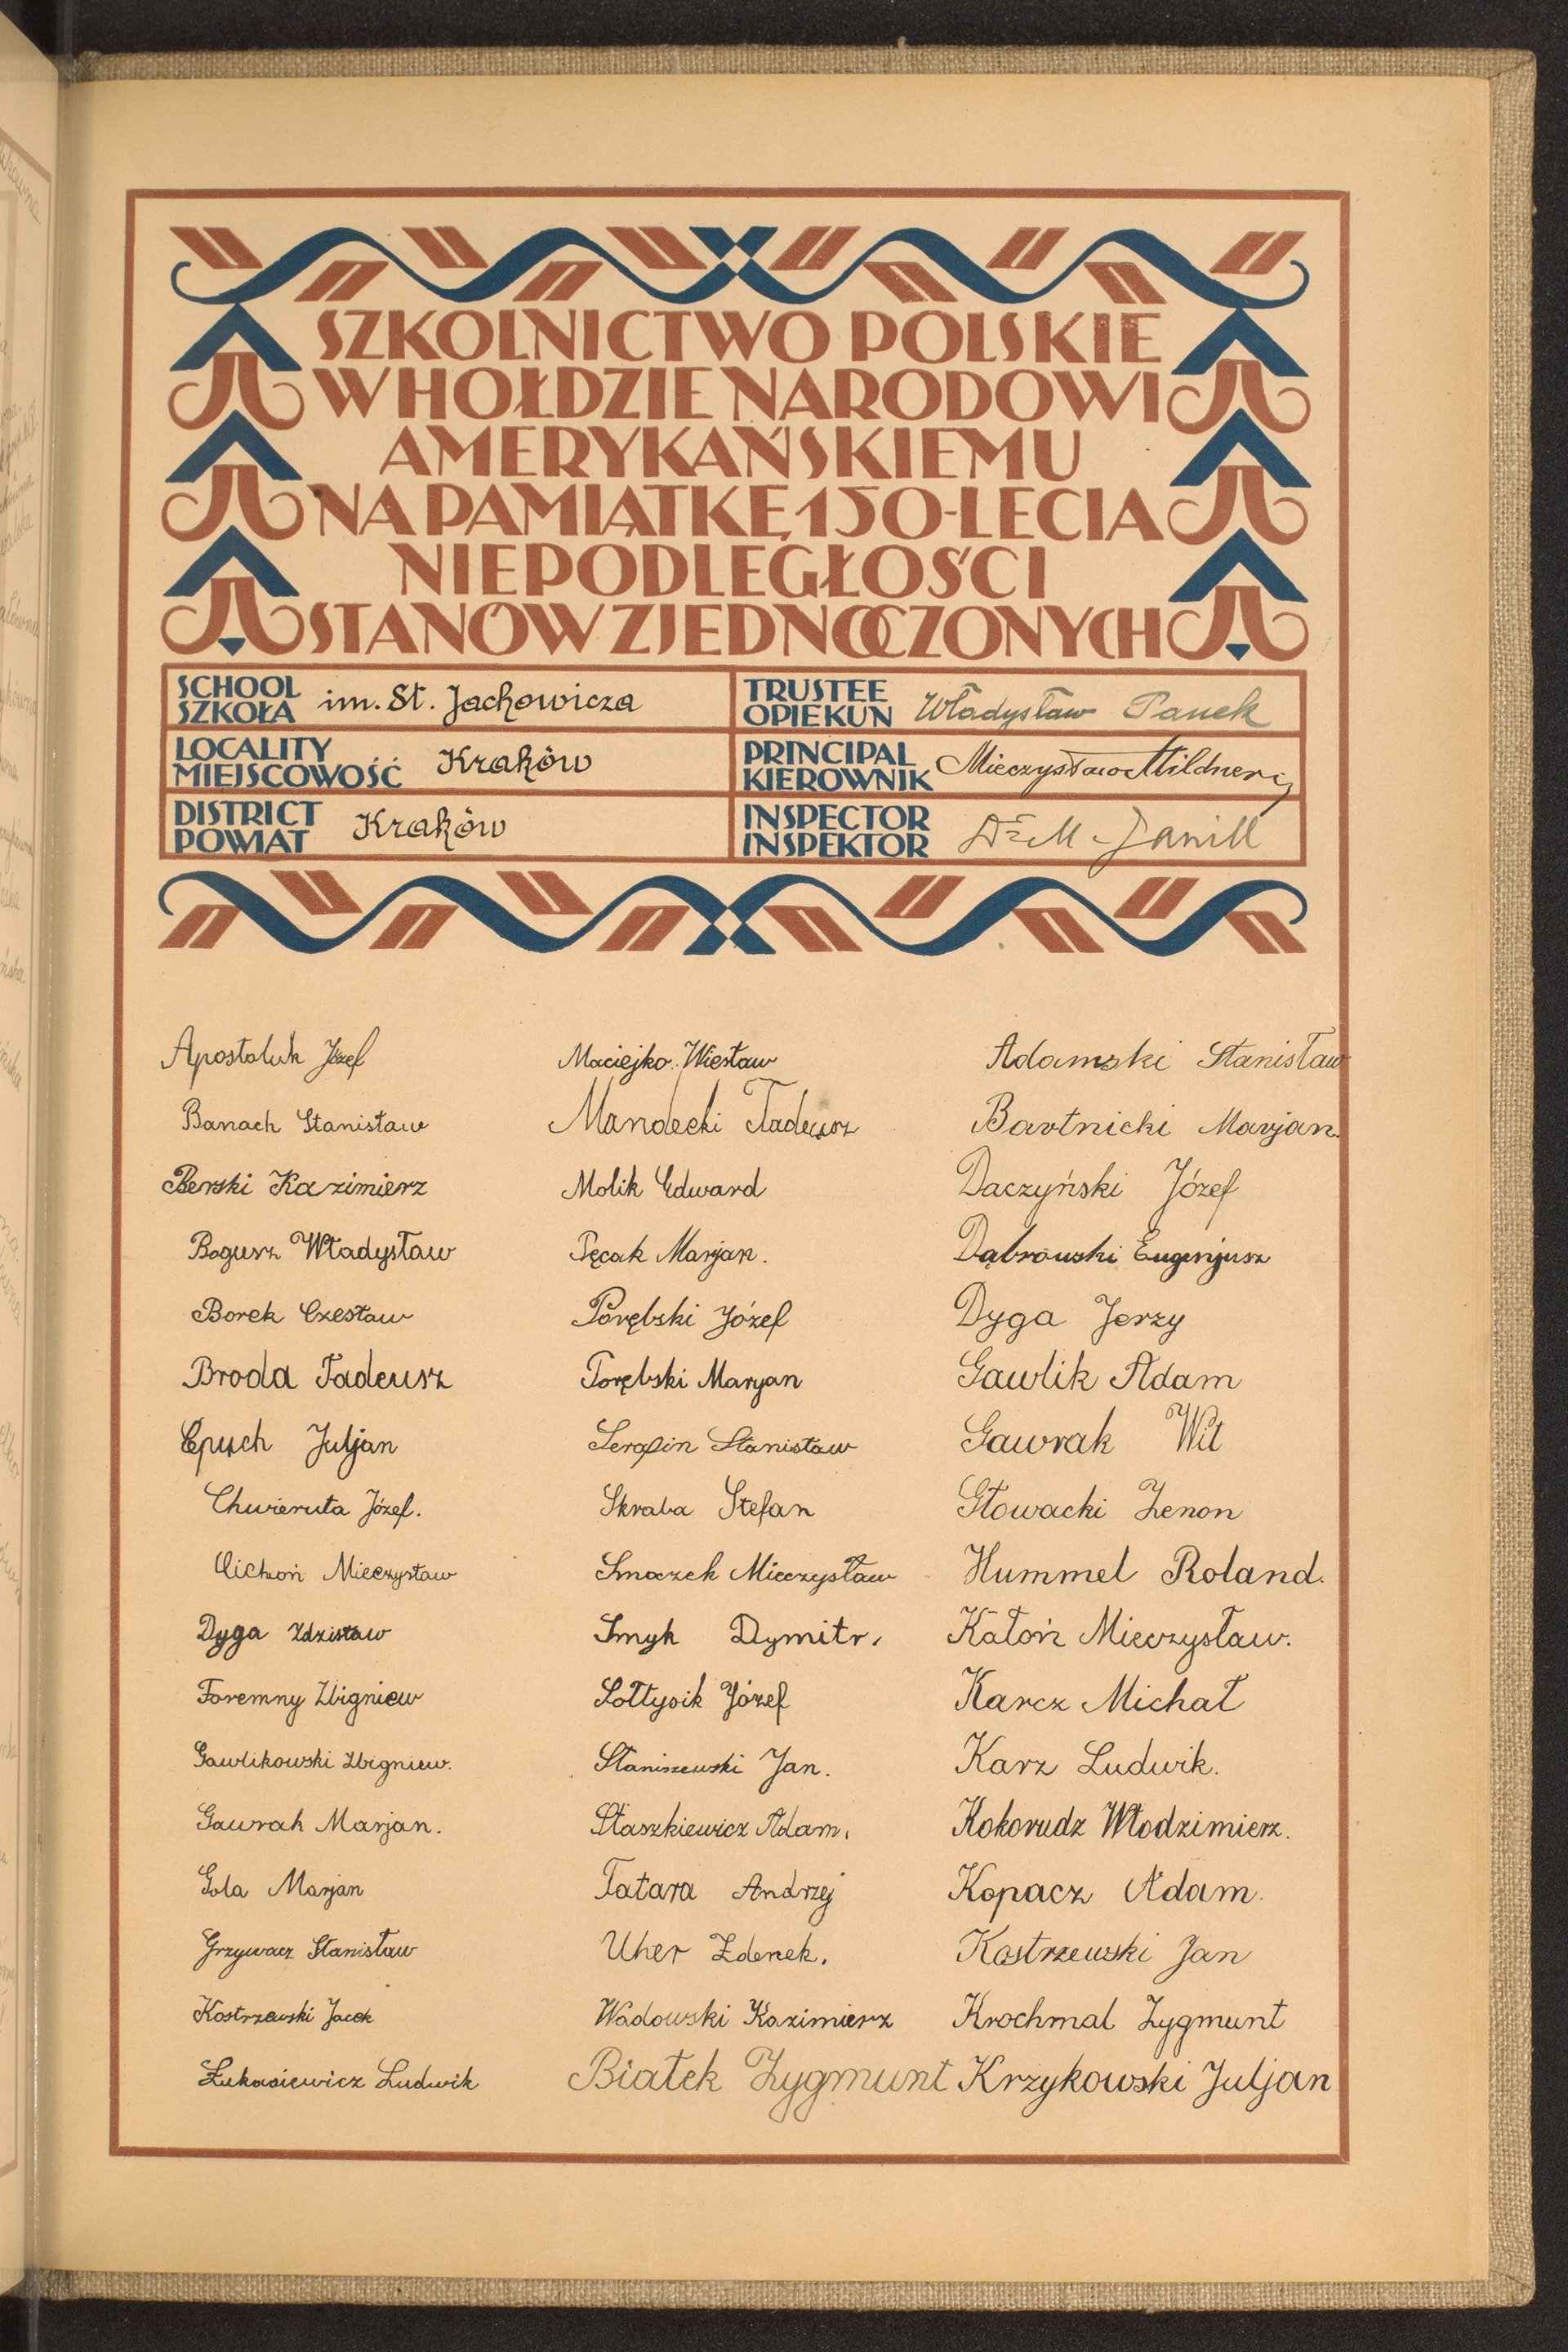 SZKOLNICTWO POLSKIE
W HOŁDZIE NARODOWI
AMERYKAŃSKIEMU
NA PAMIĄTKĘ 150-LECIA
NIEPODLEGŁOŚCI
STANÓW ZJEDNOCZONYCH
SCHOOL
SZKOŁA im. St. Jachowicza
TRUSTEE
OPIEKUN Władysław Panek
LOCALITY
MIEJSCOWOŚĆ Kraków
PRINCIPAL
KIEROWNIK Mieczysław Mildner
DISTRICT
POWIAT Kraków
INSPECTOR
INSPEKTOR Dr M. Janill
Apostoluk Józef
Banach Stanisław
Berski Kazimierz
Bogusz Władysław
Borek Czesław
Broda Tadeusz
Cpuch Juljan
Chwieruta Józef.
Cichoń Mieczysław
Dyga Zdzisław
Foremny Zbigniew
Gawlikowski Zbigniew.
Gawrak Marjan.
Gola Marjan
Grzywacz Stanisław
Kostrzewski Jacek
Łukasiewicz Ludwik
Maciejko Wiesław
Mandecki Tadeusz
Molik Edward
Pęcak Marjan.
Porębski Józef
Porębski Maryan
Serafin Stanisław
Skraba Stefan
Smaczek Mieczysław
Smyk Dymitr.
Sołtysik Józef
Staniszewski Jan.
Staszkiewicz Adam.
Tatara Andrzej
Uher Zdenek.
Wadowski Kazimierz
Białek Zygmunt
Adamski Stanisław
Bartnicki Marjan.
Daczyński Józef
Dąbrowski Eugenjusz
Dyga Jerzy
Gawlik Adam
Gawrak Wit
Głowacki Zenon
Hummel Roland.
Kałoń Mieczysław.
Karcz Michał
Karz Ludwik.
Kokorudz Włodzimierz.
Kopacz Adam.
Kostrzewski Jan
Krochmal Zygmunt
Krzykowski Juljan